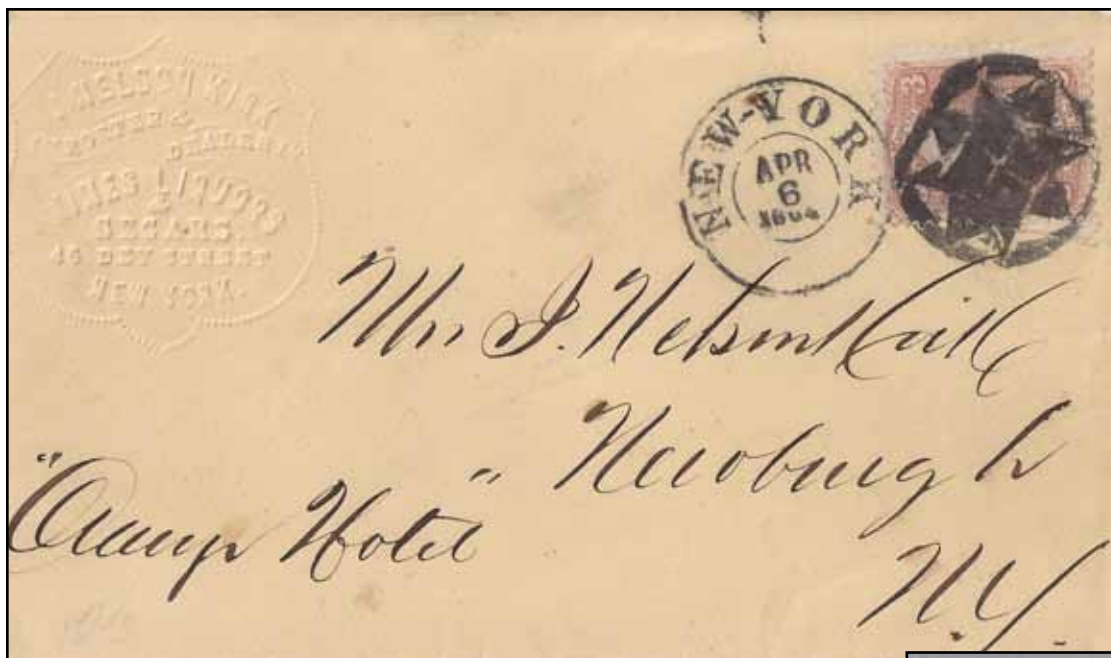 NELSON KIRK
PORTER &
DEALER IN
WINES LIQUORS
&
SEGARS.
46 DEY STREET
NEW YORK.
NEW-YORK
APR
6
1864
3
Mrs J. Nelson Kirk
Newburgh
"Orange Hotel"
N.Y.